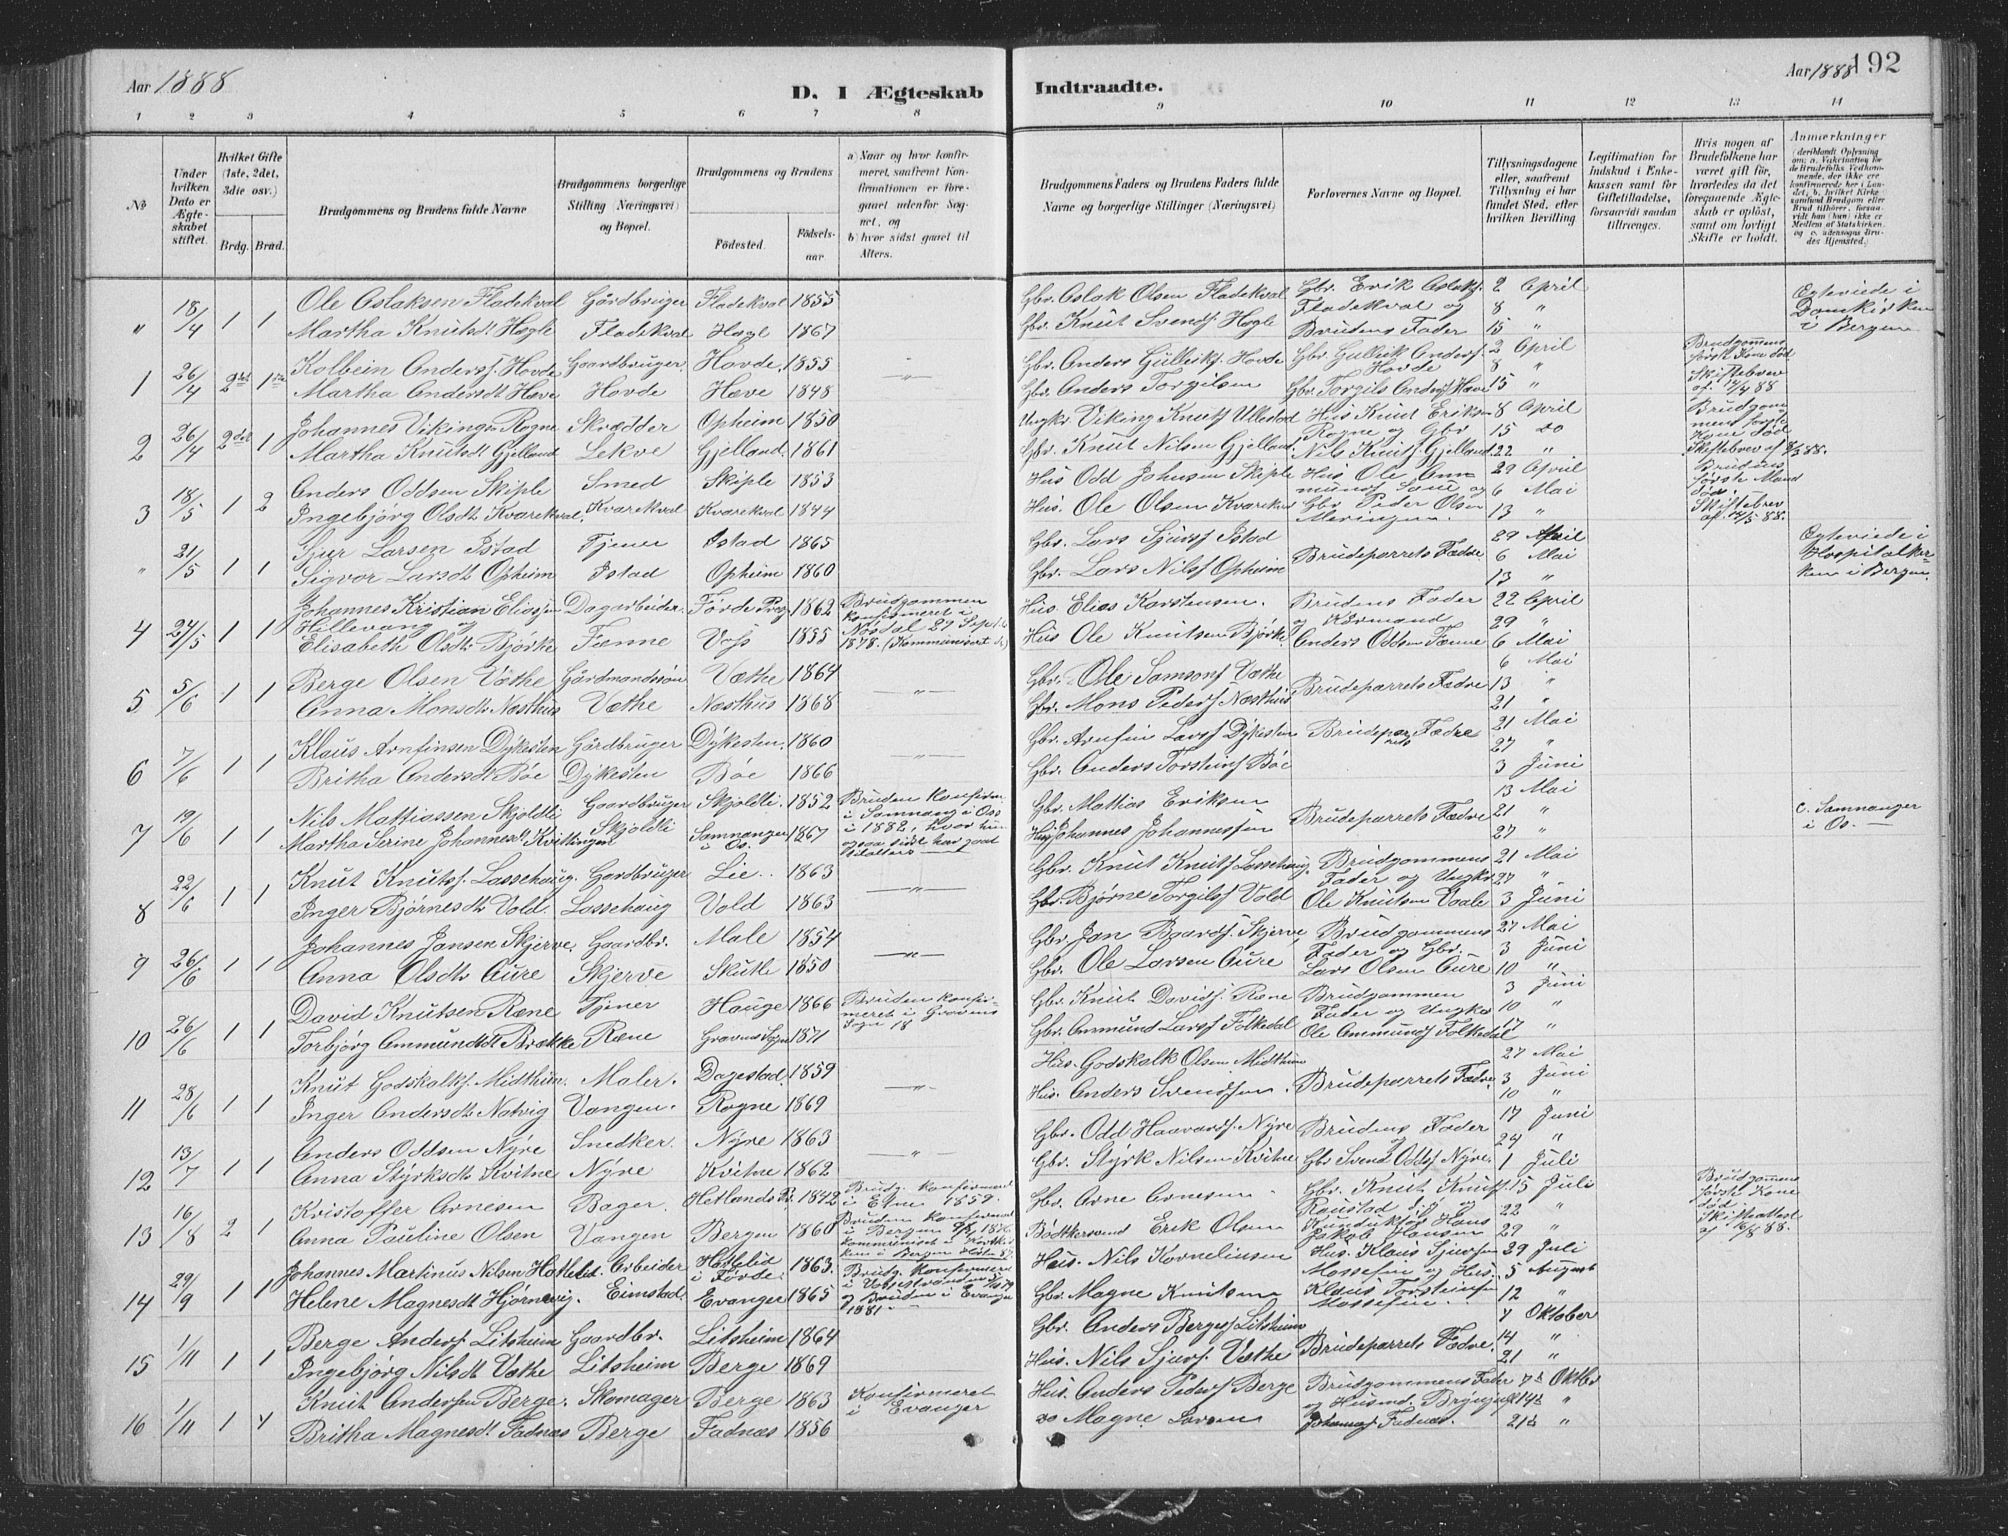 Aar 1888
D. I Ægteskab
Indtraadte.
Aar 1888
192
1 2 3 4 5 6 7 8
9 10 11 12 13 14
No
Under hvilken Dato er Ægteskabet stiftet.
Hvilket Gifte (1ste, 2det, 3die osv.)
Brdg. Brud.
Brudgommens og Brudens fulde Navne
Brudgommens borgerlige Stilling (Næringsvei) og Bopæl.
Brudgommens og Brudens
Fødested.
Fødselsaar
a) Naar og hvor konfirmeret, saafremt Konfirmationen er foregaaet udenfor Sognet, og
b) hvor sidst gaaet til Alters.
Brudgommens Faders og Brudens Faders fulde Navne og borgerlige Stillinger (Næringsvei)
Forlovernes Navne og Bopæl.
Tillysningsdagene eller, saafremt Tillysning ei har fundet Sted, efter hvilken Bevilling.
Legitimation for Indskud i Enkekassen samt for Giftetilladelse, forsaavidt saadan tiltrænges.
Hvis nogen af Brudefolkene har været gift før, hvorledes da det foregaaende Ægteskab er opløst, samt om lovligt Skifte er holdt.
Anmærkninger
" 18/4 1 1 Ole Oslaksen Fladekval Gårdbruger Fladekval 1855 Gbr. Oslak Olsen Fladekval Gbr. Erik Oslaks. 2 April Ægteviede i
Martha Knutsdt Hogle Fladekval Hogl 1867 Gbr. Knut Svends. Hogle Fladekval og Brudens Fader 8 " 15 " Domkirken i Bergen
1 26/4 2det 1ste Kolbein Anders. Hovde Gaardbruger Hovde 1855 Gbr. Anders Gulleiks. Hovde Gbr. Gulleik Anders. Hovde 2 April 8 " Brudgommens første Kone død
Martha Andersdt Hæve Hovde Hæve 1848 Gbr. Anders Torgilsen Gbr. Torgils Anders. Hæve 15 " Skiftebrev af 14/4 88
2 26/4 2det 1 Johannes Vikings. Rogne Skrædder Opheim 1850 Ungkr. Viking Knuts. Ullestad Hus. Knut Eriksen 8 April
Martha Knutsdt Gjelland Lekve Gjelland 1861 Gbr. Knut Nilsen Gjelland. Rogne og Gbr. Nils Knuts. Gjelland 15 do 22 "
3 18/5 1 2 Anders Oddsen Skiple Smed Skiple 1853 Hus. Odd Johnsen Skiple 29 April Brudens første Mand død.
Ingebjørg Olsdt Kvarekval. Kvarekval Kvarekval 1844 Hus. Ole Olsen Kvarekval Gbr. Peder Olsen 6 Mai 13 " Skiftebrev af 14/5 88.
" 21/5 1 1 Sjur Larsen Istad Tjener Istad 1865 Gbr. Lars Sjurs. Istad Brudeparrets Fædre 29 April 6 Mai Ægteviede i
Sigvor Larsdt Opheim Istad Opheim 1860 Gbr. Lars Nils. Opheim 13 " Hospitalkirken i Bergen.
4 24/5 1 1 Johannes Kristian Eliassen Dagarbeider. Førde Præg. 1862 Brudgommen konfirmeret i Hus. Elias Karstensen. Brudens Fader 22 April
Hillevang og
Elisabeth Olsdt Bjørke Fenne Voss 1855 1878. (Kommuniceret do) Hus. Ole Knutsen Bjørke. Anders Oddsen Fenne 29 " 6 Mai
5 5/6 1 1 Berge Olsen Væthe Gårdmandssøn Væthe 1864 Gbr. Ole Samsons. Væthe Brudeparrets Fædre 6 Mai
Anna Monsdt Næsthus Væthe Næsthus 1868 Gbr. Mons Peders. Næsthus 13 " 21 "
6 7/6 1 1 Klaus Arnfinsen Dykesten Gårdbruger Dykesten. 1860 Gbr. Arnfin Lars. Dykesten Brudeparrets Fædre 21 Mai
Britha Andersdt Bøe Dykesten Bøe 1866 Gbr. Anders Torsteins. Bøe 27 " 3 Juni
7 19/6 1 1 Nils Mattiassen Skjoldli Gaardbruger Skjoldli. 1852 Bruden konfirm. i Samnang i Os Gbr. Mattias Eriksen Brudeparrets Fædre 13 Mai 21 " c. Samnanger i Os.
Martha Serine Johannesdt Kvittingen Skjoldli Samnanger i Os. 1867 i 1882, hvor hun ogsaa sidst har gaat tilalters Hus. Johannes Johannessen 27 "
8 22/6 1 1 Knut Knuts. Lassehaug. Gardbruger Lie. 1863 Gbr. Knut Knuts. Lassehaug. Brudgommens 21 Mai
Inger Bjørnesdt Vold. Lassehaug Vold 1863 Gbr. Bjørne Torgils. Vold Fader og Ungkr. Ole Knutsen Vaale 27 " 3 Juni
9 26/6 1 1 Johannes Jansen Skjerve. Gaardbr. Male 1854 Gbr. Jan Baards. Skjerve, Brudgommens 27 Mai
Anna Olsdt Aure Skjerve Skutle 1850 Gbr. Ole Larsen Aure Fader og Gbr. Lars Olsen Aure 3 Juni 10 "
10 26/6 1 1 David Knutsen Rene Tjener Hauge 1866 Bruden konfirmeret i Gravens Sogn 18 Gbr. Knut Davids. Rene Brudgommen 3 Juni
Torbjørg Ammundsdt Brække Rene Gravens Sogn 1871 Gbr. Ammund Lars. Folkedal Fader og Ungkr. Ole Ammunds. Folkedal 10 " 17 "
11 28/6 1 1 Knut Godskalks. Midthun. Maler. Dagestad 1859 Hus. Godskalk Olsen Midthun 27 Mai
Inger Andersdt Natvig Vangen. Rogne 1869 Hus. Anders Svendsen. Brudeparrets Fædre. 3 Juni 10 "
12 13/7 1 1 Anders Oddsen Nyre Snedker. Nyre 1863 Gbr. Odd Haavards. Nyre Brudens Fader og 17 Juni 24 "
Anna Styrksdt Kvitne Nyre Kvitne 1862 Gbr. Styrk Nilsen Kvitne Gbr Svend Odds. Nyre. 1 Juli
13 16/8 2 1 Kristoffer Arnesen Bager. Hetlands Pr. 1842 Brudg. konfirmeret i Etne 1859. Gbr. Arne Arnesen Gbr. Knut Knuts. 15 Juli Brudgommens første Kone død
Anna Pauline Olsen Vangen Bergen 1860 Bruden konfirmeret i Bergen Bødkersvend Erik Olsen Jakob Hansen 22 " 29 " Skifteattest af 16/8 88.
14 29/9 1 1 Johannes Martinus Nilsen Hatlelid. Arbeider Hatlelid i Førde 1863. Brudg. konfirmeret Hus. Nils Kornelinsen Hus. Klaus Sjursen 29 Juli
Helene Magnesdt Hjørnevig. Eimstad Evanger 1865 og Bruden i Evanger 1881. Gbr. Magne Knutsen Mossefin og Hus. Klaus Torsteinsen Mossefin. 5 August 12 "
15 1/11 1 1 Berge Anders. Litsheim Gaardbr. Litsheim 1864 Gbr. Anders Berges. Litsheim 7 Oktober
Ingebjørg Nilsdt Væthe Litsheim Berge 1869 Hus. Nils Sjurs. Væthe Brudeparrets Fædre. 14 " 21 "
16 1/11 1 1 Knut Andersen Berge. Skomager Berge 1863 Konfirmeret i Evanger Hus. Anders Peders. Berge Brudgommens Fader 7de Oktbr
Britha Magnesdt Fadnæs Berge Fadnæs 1856 do Magne Larsen og Husmd. Brynjulf Johannes. Fadnæs. 14de 21de "